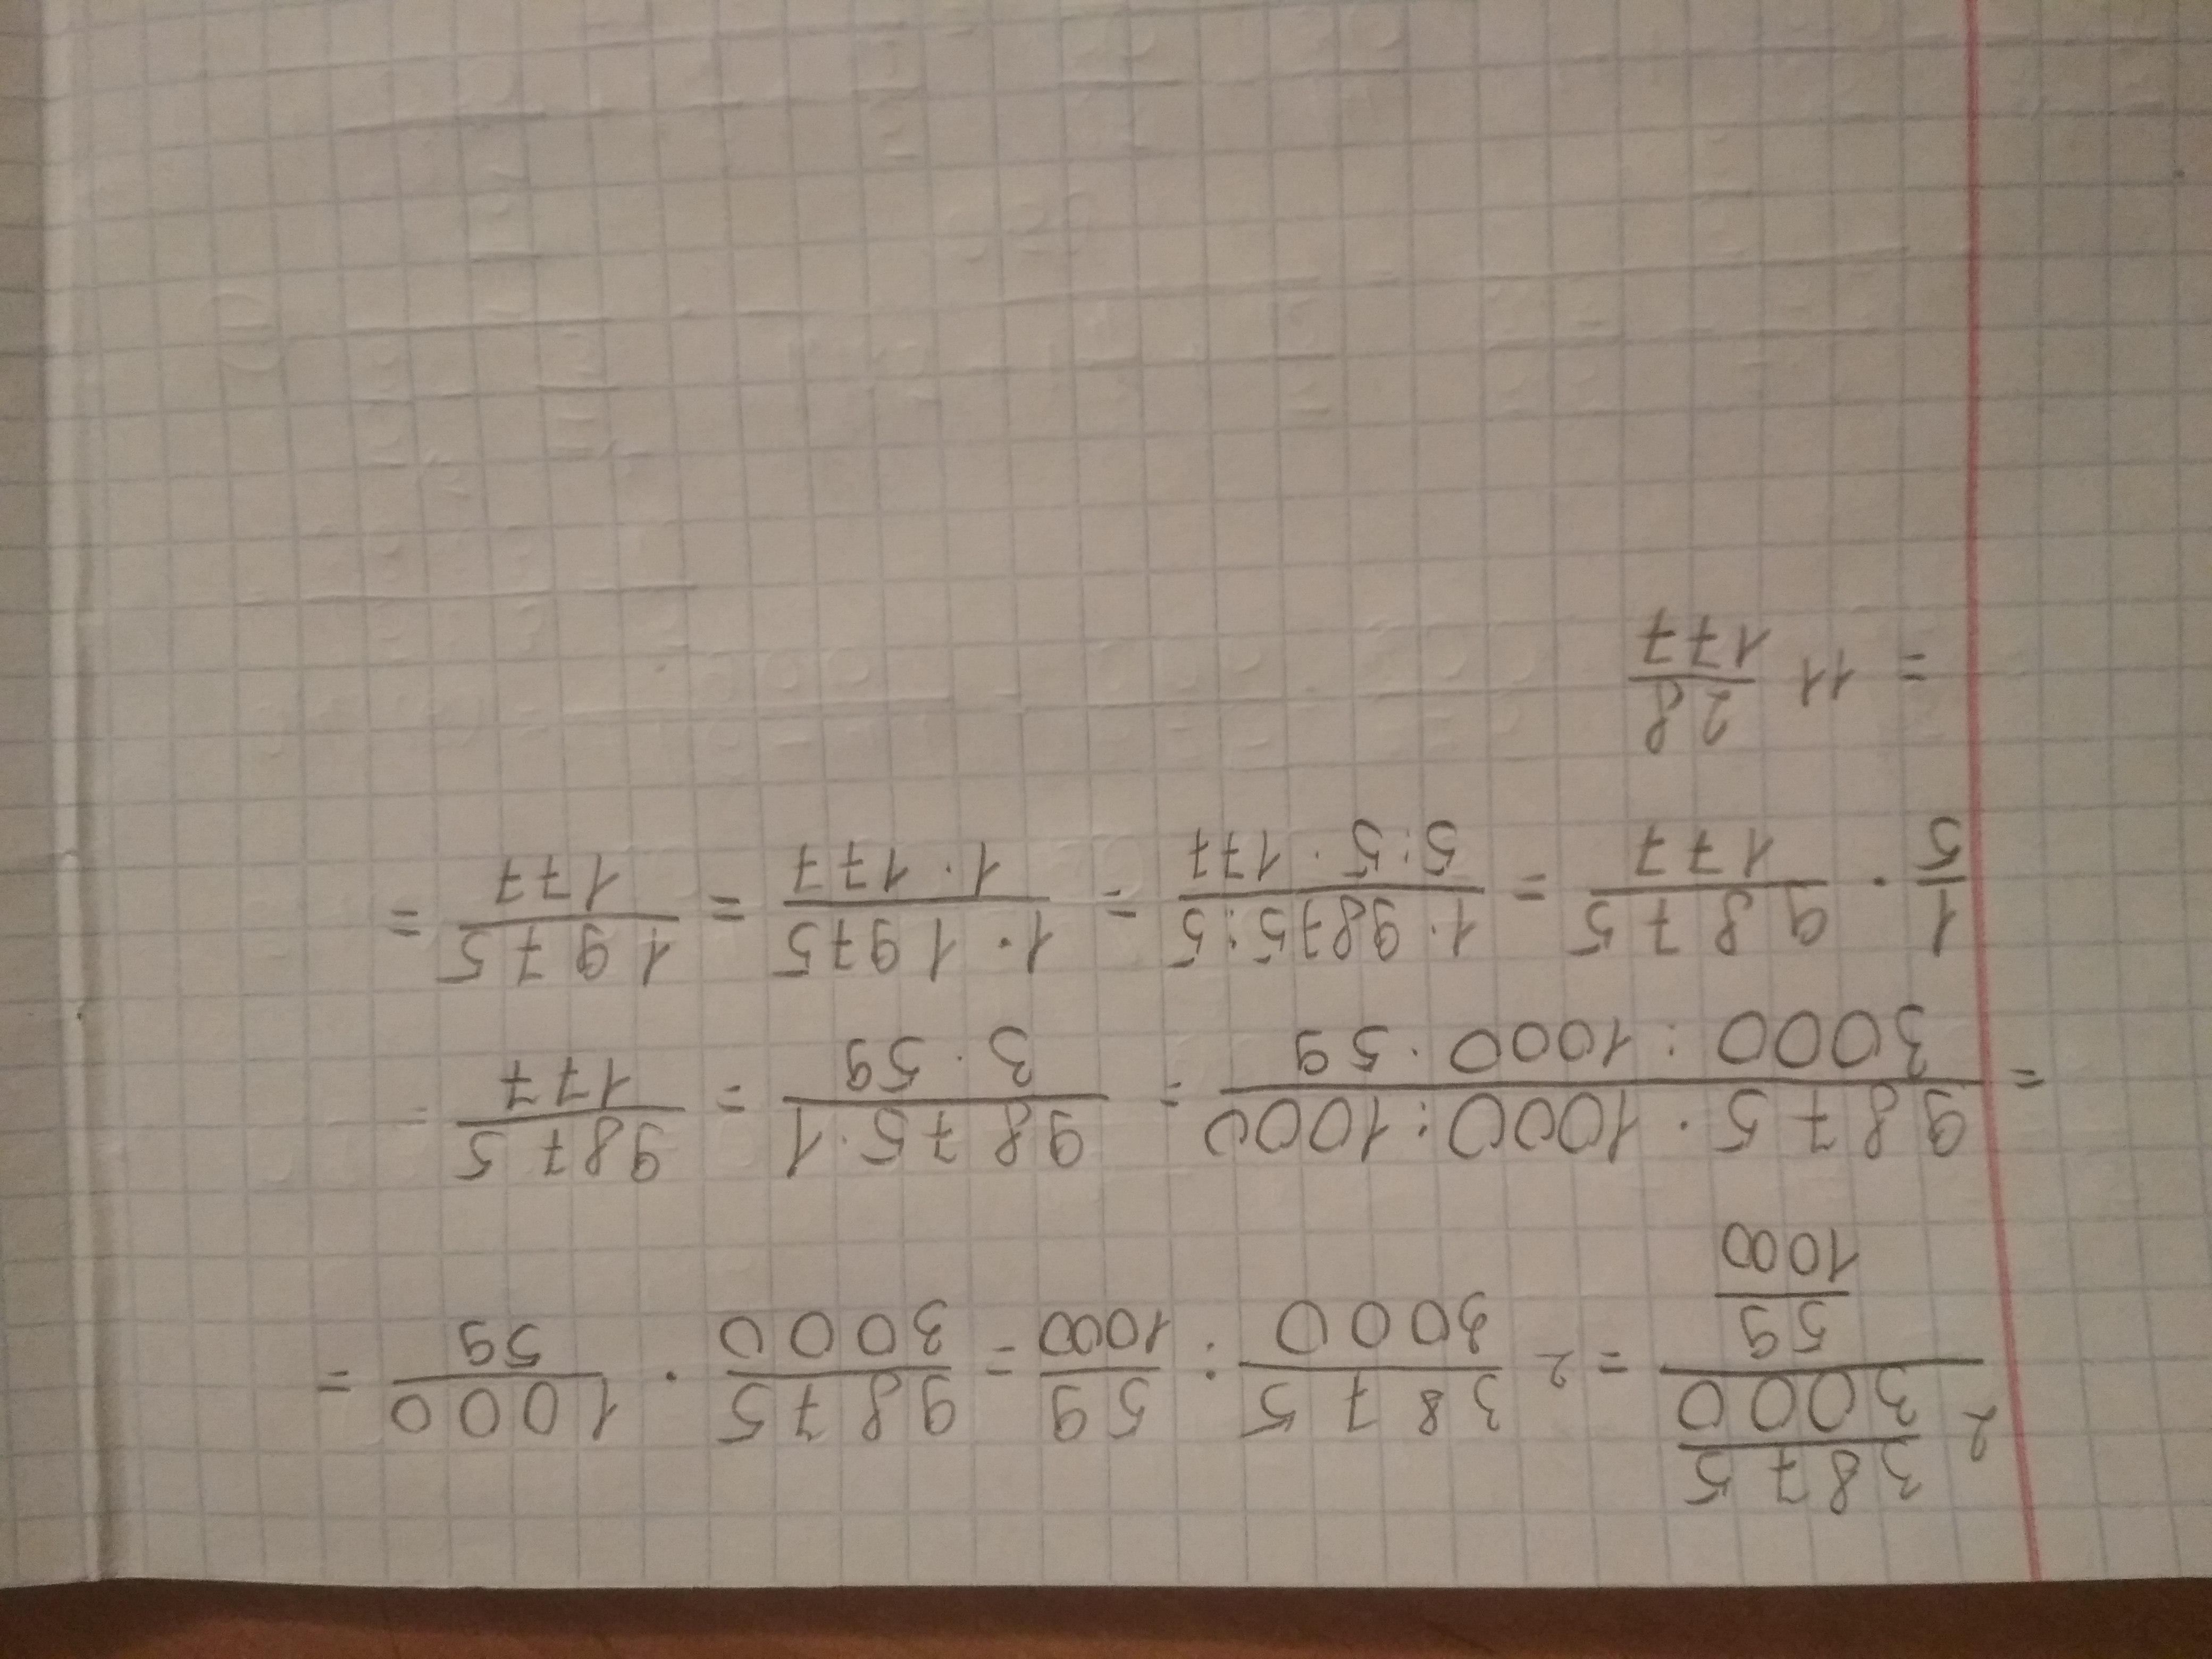 2 3875/3000 / 59/1000 = 2 3875/3000 : 59/1000 = 9875/3000 · 1000/59 =
= 9875 · 1000:1000 / 3000 : 1000 · 59 = 9875·1 / 3 · 59 = 9875/177 =
1/5 · 9875/177 = 1·9875:5 / 5:5 · 177 = 1·1975 / 1·177 = 1975/177 =
= 11 28/177